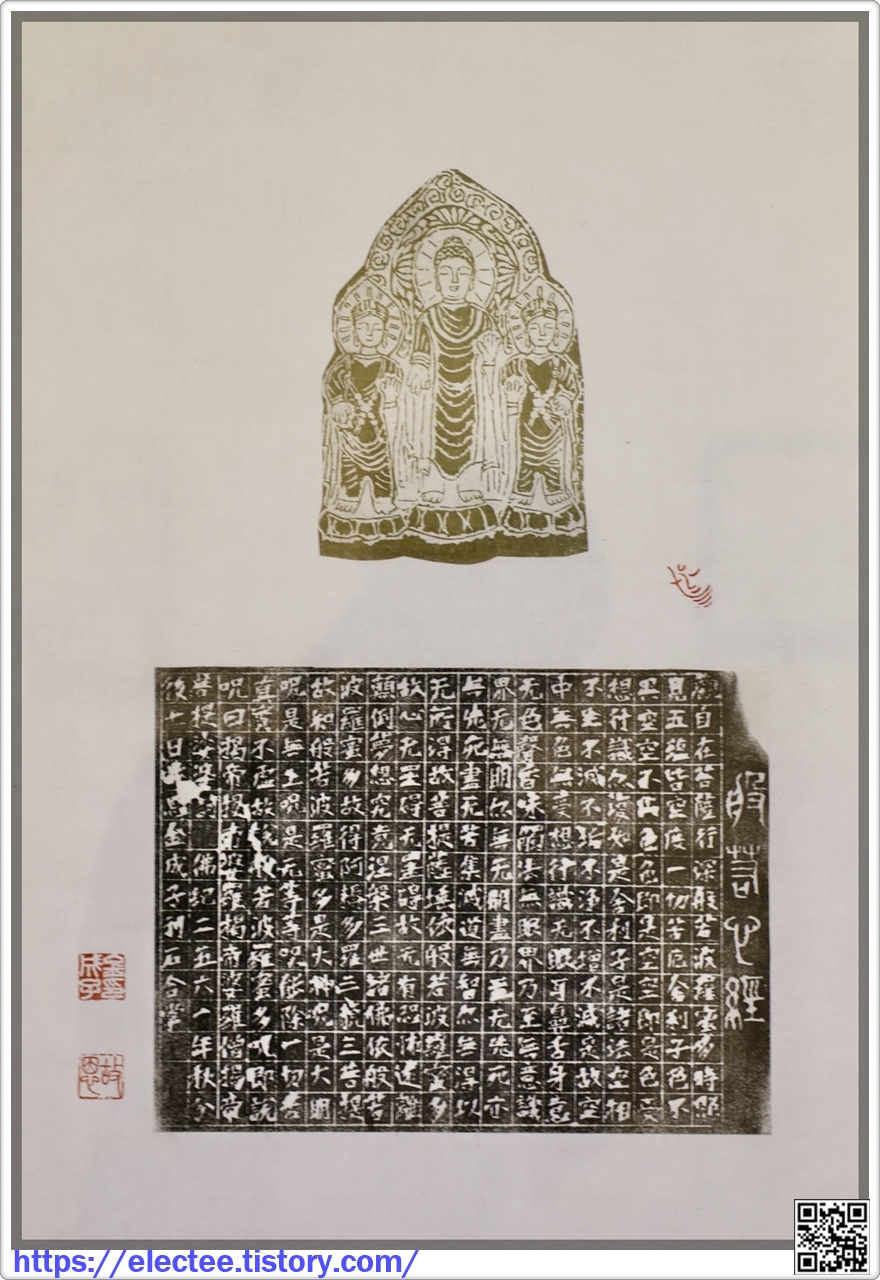 般若心經
觀自在菩薩行深般若波羅蜜多時照
見五蘊皆空度一切苦厄舍利子色不
異空空不異色色即是空空即是色受
想行識亦復如是舍利子是諸法空相
不生不滅不垢不淨不增不減是故空
中無色無受想行識无眼耳鼻舌身意
无色聲香味觸法無眼界乃至無意識
界无無明亦無无明盡乃至无老死亦
無老死盡无苦集滅道無智亦無得以
无所得故菩提薩埵依般若波羅蜜多
故心无罣碍无罣碍故无有恐怖遠離
顛倒夢想究竟涅槃三世諸佛依般若
波羅蜜多故得阿耨多羅三藐三菩提
故知般若波羅蜜多是大神呪是大明
呪是無上呪是无等等呪能除一切苦
真實不虛故說般若波羅蜜多呪即說
呪曰揭帝揭帝婆羅揭帝婆羅僧揭帝
菩提娑婆訶 佛紀二五六一年秋分
後十日 金成子刻石合掌
https://electee.tistory.com/